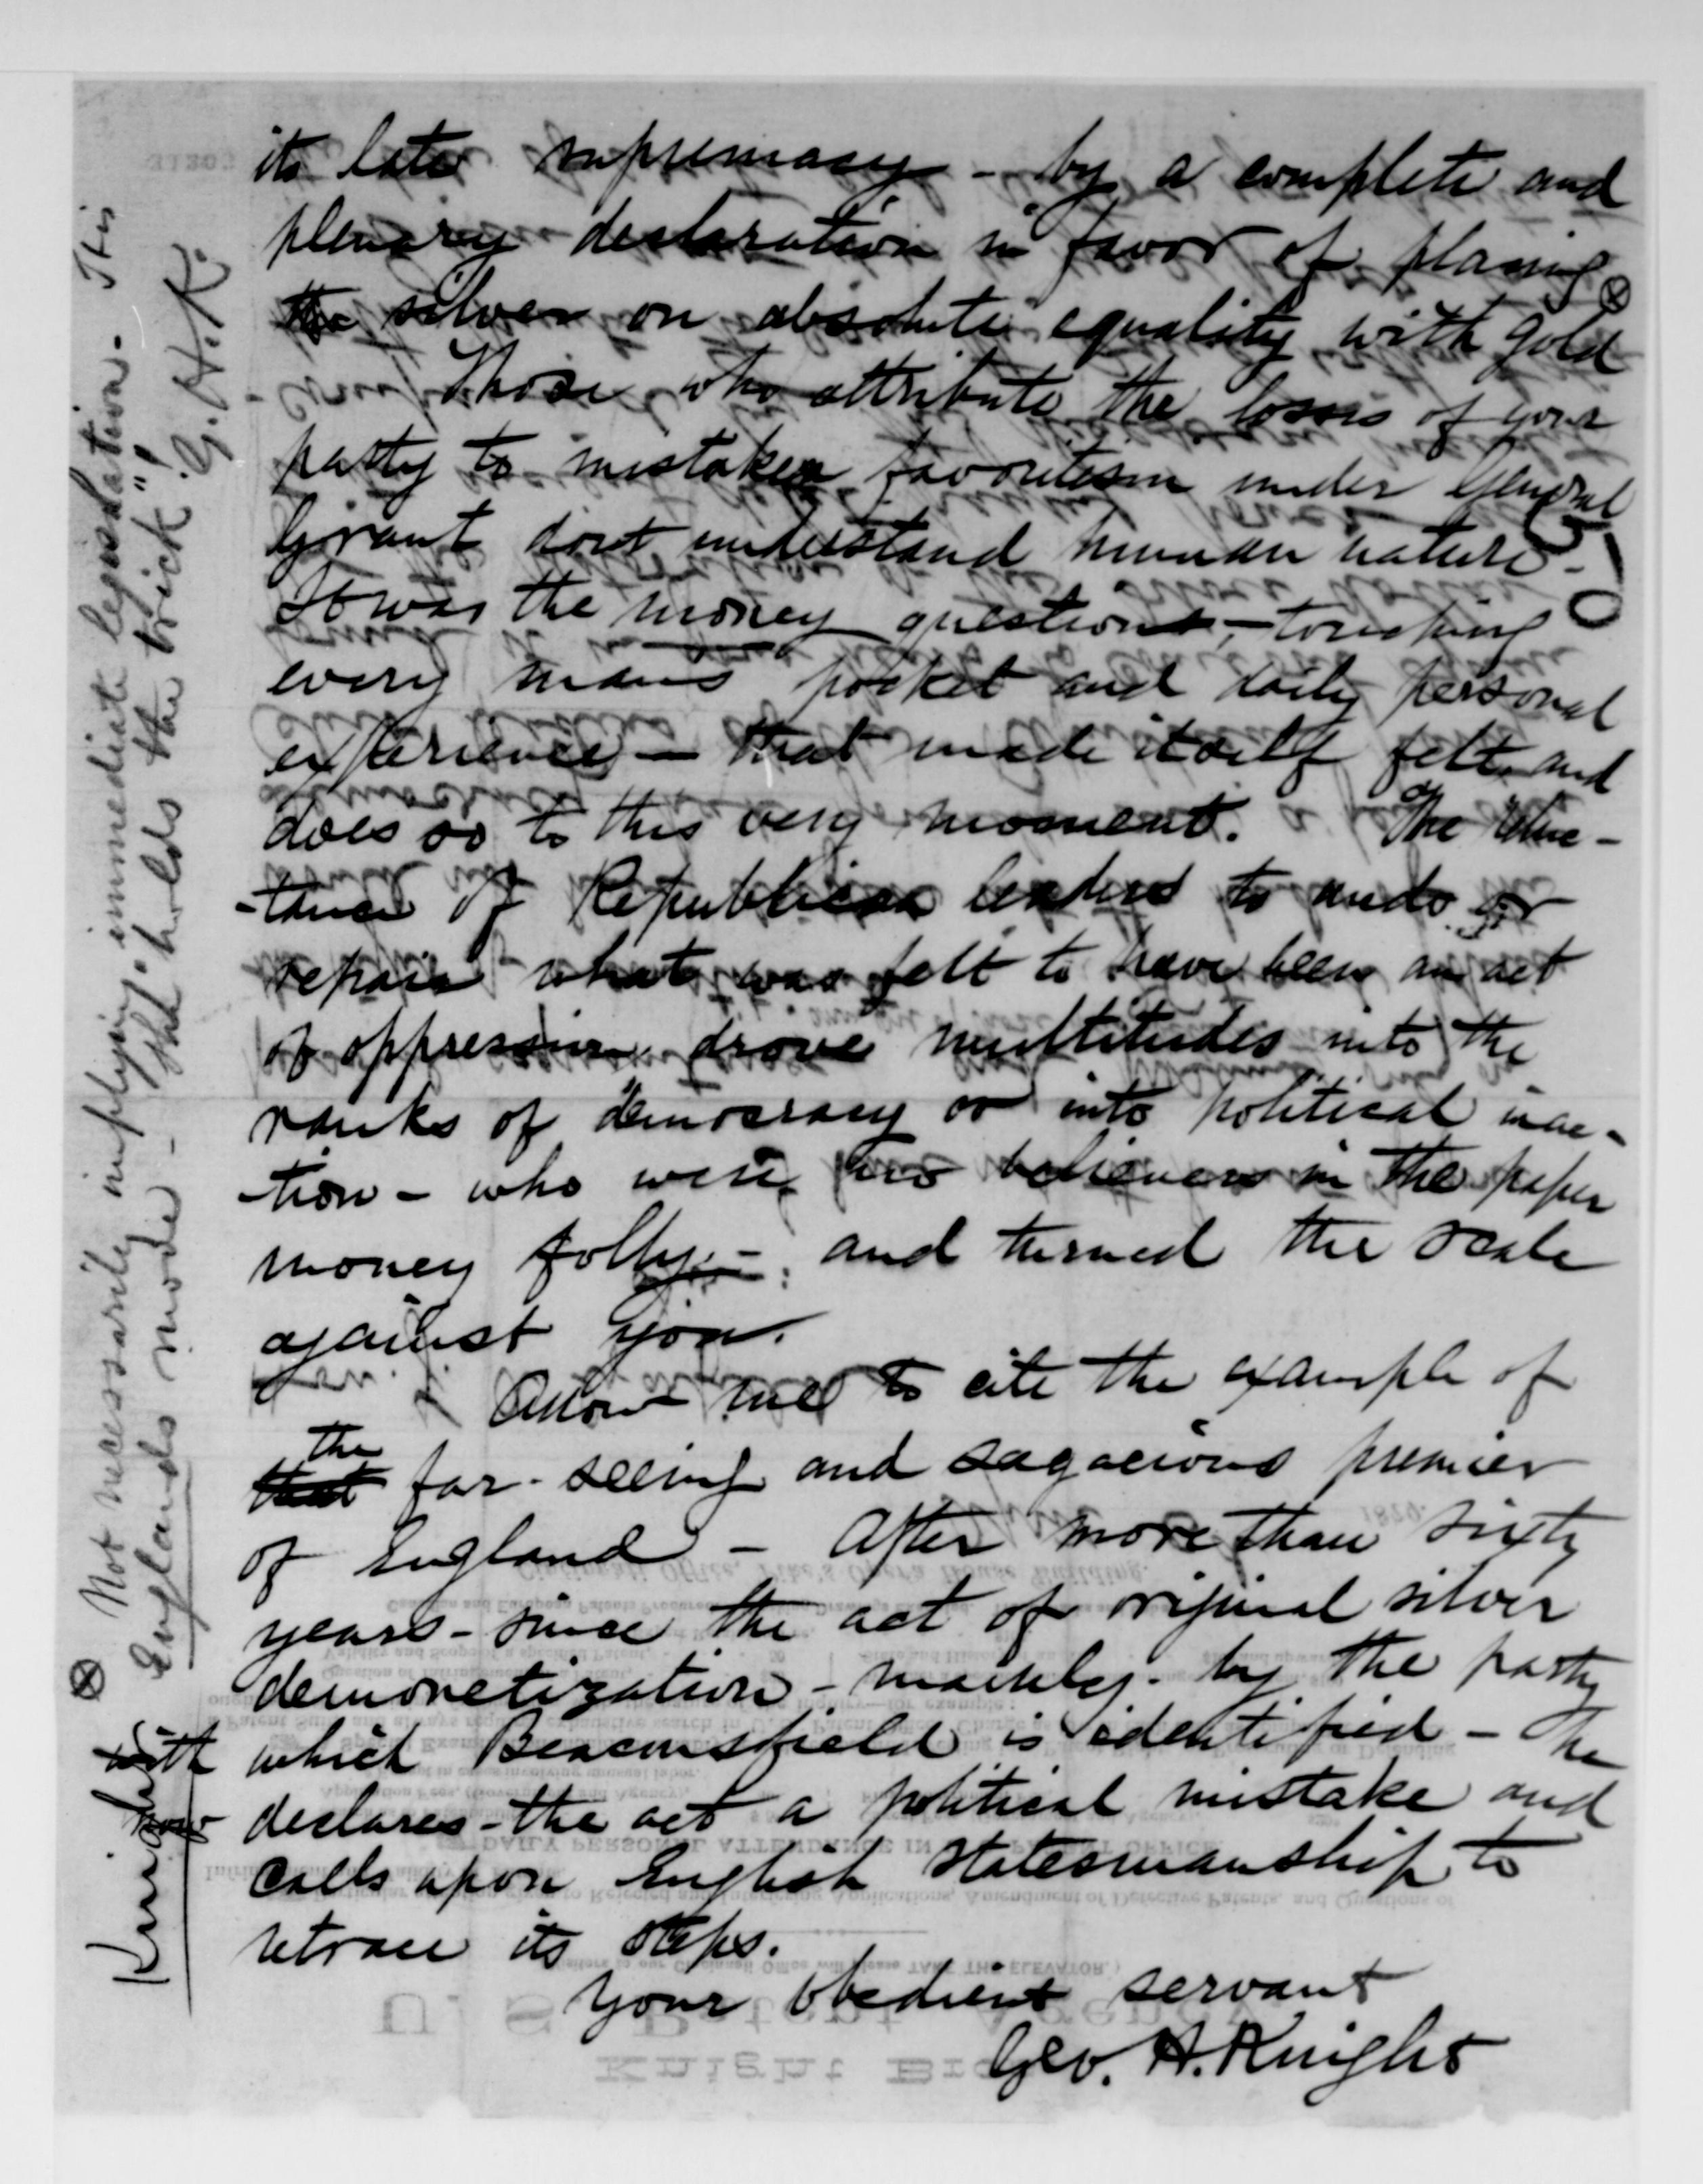 its late supremacy - by a complete and
plenary declaration in favor of placing
the silver on absolute equality with gold ⊗
Those who attribute the losses of your
party to mistaken favoritism under General
Grant dont understand human nature -
It was the money question - touching
every mans pocket and daily personal
experience - that made itself felt and
does so to this very moment. The reluc-
-tance of Republican leaders to undo or
repair what was felt to have been an act
of oppression drove multitudes into the
ranks of democracy or into political inac-
-tion - who were no believers in the paper
money folly - and turned the scale
against you.
Allow me to cite the example of
the
that far-seeing and sagacious premier
of England - After more than sixty
years - since the act of original silver
demonetization - mainly by the party
with which Beaconsfield is identified - he
now declares - the act a political mistake and
calls upon English statesmanship to
retrace its steps.
Your obedient servant
Geo. H. Knight
⊗ Not necessarily implying immediate legislation - This
Englands mode - and "holds the trick"! G. H. K.
Knight